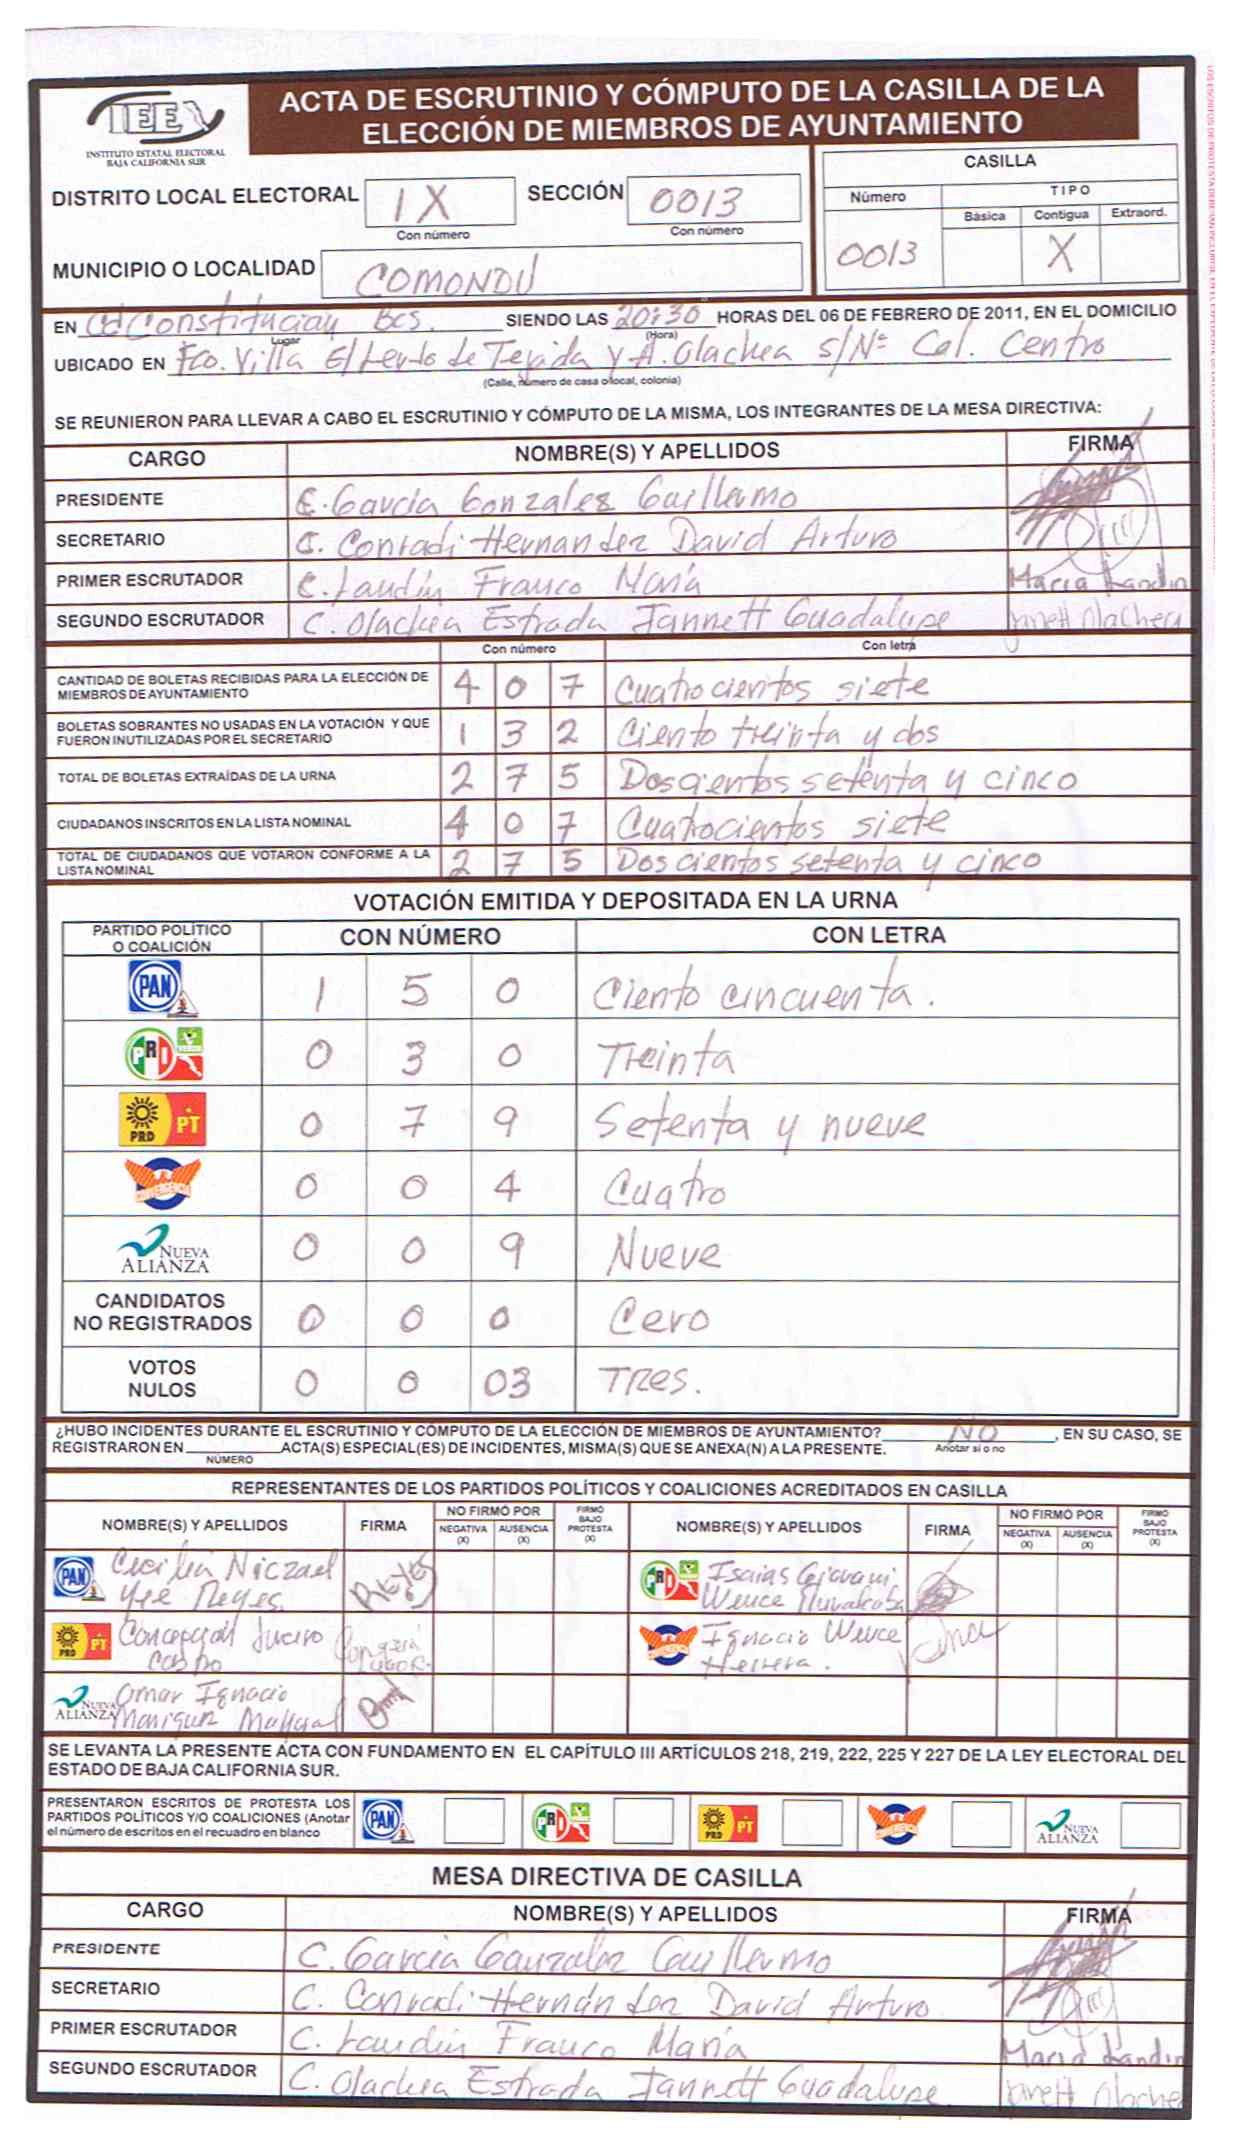 ACTA DE ESCRUTINIO Y CÓMPUTO DE LA CASILLA DE LA
ELECCIÓN DE MIEMBROS DE AYUNTAMIENTO
INSTITUTO ESTATAL ELECTORAL
BAJA CALIFORNIA SUR
DISTRITO LOCAL ELECTORAL IX SECCIÓN 0013
Con número Con número
MUNICIPIO O LOCALIDAD COMONDU
CASILLA
Número TIPO
Básica Contigua Extraord.
0013 X
EN Cd Constitucion Bcs. SIENDO LAS 20:30 HORAS DEL 06 DE FEBRERO DE 2011, EN EL DOMICILIO
Lugar (Hora)
UBICADO EN Fco. Villa E/ Lerdo de Tejida y A. Olachea s/Nº Col. Centro
(Calle, número de casa o local, colonia)
SE REUNIERON PARA LLEVAR A CABO EL ESCRUTINIO Y CÓMPUTO DE LA MISMA, LOS INTEGRANTES DE LA MESA DIRECTIVA:
CARGO NOMBRE(S) Y APELLIDOS FIRMA
PRESIDENTE C. García Gonzalez Guillermo
SECRETARIO C. Conradi Hernandez David Arturo
PRIMER ESCRUTADOR C. Landín Franco María María Landin
SEGUNDO ESCRUTADOR C. Olachea Estrada Jannett Guadalupe Janett Olachea
Con número Con letra
CANTIDAD DE BOLETAS RECIBIDAS PARA LA ELECCIÓN DE
MIEMBROS DE AYUNTAMIENTO 4 0 7 Cuatrocientos siete
BOLETAS SOBRANTES NO USADAS EN LA VOTACIÓN Y QUE
FUERON INUTILIZADAS POR EL SECRETARIO 1 3 2 Ciento treinta y dos
TOTAL DE BOLETAS EXTRAÍDAS DE LA URNA 2 7 5 Doscientos setenta y cinco
CIUDADANOS INSCRITOS EN LA LISTA NOMINAL 4 0 7 Cuatrocientos siete
TOTAL DE CIUDADANOS QUE VOTARON CONFORME A LA
LISTA NOMINAL 2 7 5 Doscientos setenta y cinco
VOTACIÓN EMITIDA Y DEPOSITADA EN LA URNA
PARTIDO POLÍTICO
O COALICIÓN CON NÚMERO CON LETRA
PAN 1 5 0 Ciento cincuenta.
PRI 0 3 0 Treinta
PRD PT 0 7 9 Setenta y nueve
CONVERGENCIA 0 0 4 Cuatro
NUEVA
ALIANZA 0 0 9 Nueve
CANDIDATOS
NO REGISTRADOS 0 0 0 Cero
VOTOS
NULOS 0 0 03 TRES.
¿HUBO INCIDENTES DURANTE EL ESCRUTINIO Y CÓMPUTO DE LA ELECCIÓN DE MIEMBROS DE AYUNTAMIENTO? NO, EN SU CASO, SE
REGISTRARON EN ACTA(S) ESPECIAL(ES) DE INCIDENTES, MISMA(S) QUE SE ANEXA(N) A LA PRESENTE. Anotar si o no
NÚMERO
REPRESENTANTES DE LOS PARTIDOS POLÍTICOS Y COALICIONES ACREDITADOS EN CASILLA
NOMBRE(S) Y APELLIDOS FIRMA NO FIRMÓ POR NEGATIVA (X) AUSENCIA (X) FIRMÓ BAJO PROTESTA (X) NOMBRE(S) Y APELLIDOS FIRMA NO FIRMÓ POR NEGATIVA (X) AUSENCIA (X) FIRMÓ BAJO PROTESTA (X)
PAN Cecilia Niczael
Yee Reyes
PRI Isaias Giovani
Wence
PRD PT Concepcion Lucero
Castro
CONVERGENCIA Ignacio Wence
Herrera.
NUEVA
ALIANZA Omar Ignacio
Manriquez
SE LEVANTA LA PRESENTE ACTA CON FUNDAMENTO EN EL CAPÍTULO III ARTÍCULOS 218, 219, 222, 225 Y 227 DE LA LEY ELECTORAL DEL
ESTADO DE BAJA CALIFORNIA SUR.
PRESENTARON ESCRITOS DE PROTESTA LOS
PARTIDOS POLÍTICOS Y/O COALICIONES (Anotar
el número de escritos en el recuadro en blanco
PAN PRI PRD PT CONVERGENCIA NUEVA ALIANZA
MESA DIRECTIVA DE CASILLA
CARGO NOMBRE(S) Y APELLIDOS FIRMA
PRESIDENTE C. García Gonzalez Guillermo
SECRETARIO C. Conradi Hernández David Arturo
PRIMER ESCRUTADOR C. Landín Franco María María Landin
SEGUNDO ESCRUTADOR C. Olachea Estrada Jannett Guadalupe Janett Olachea